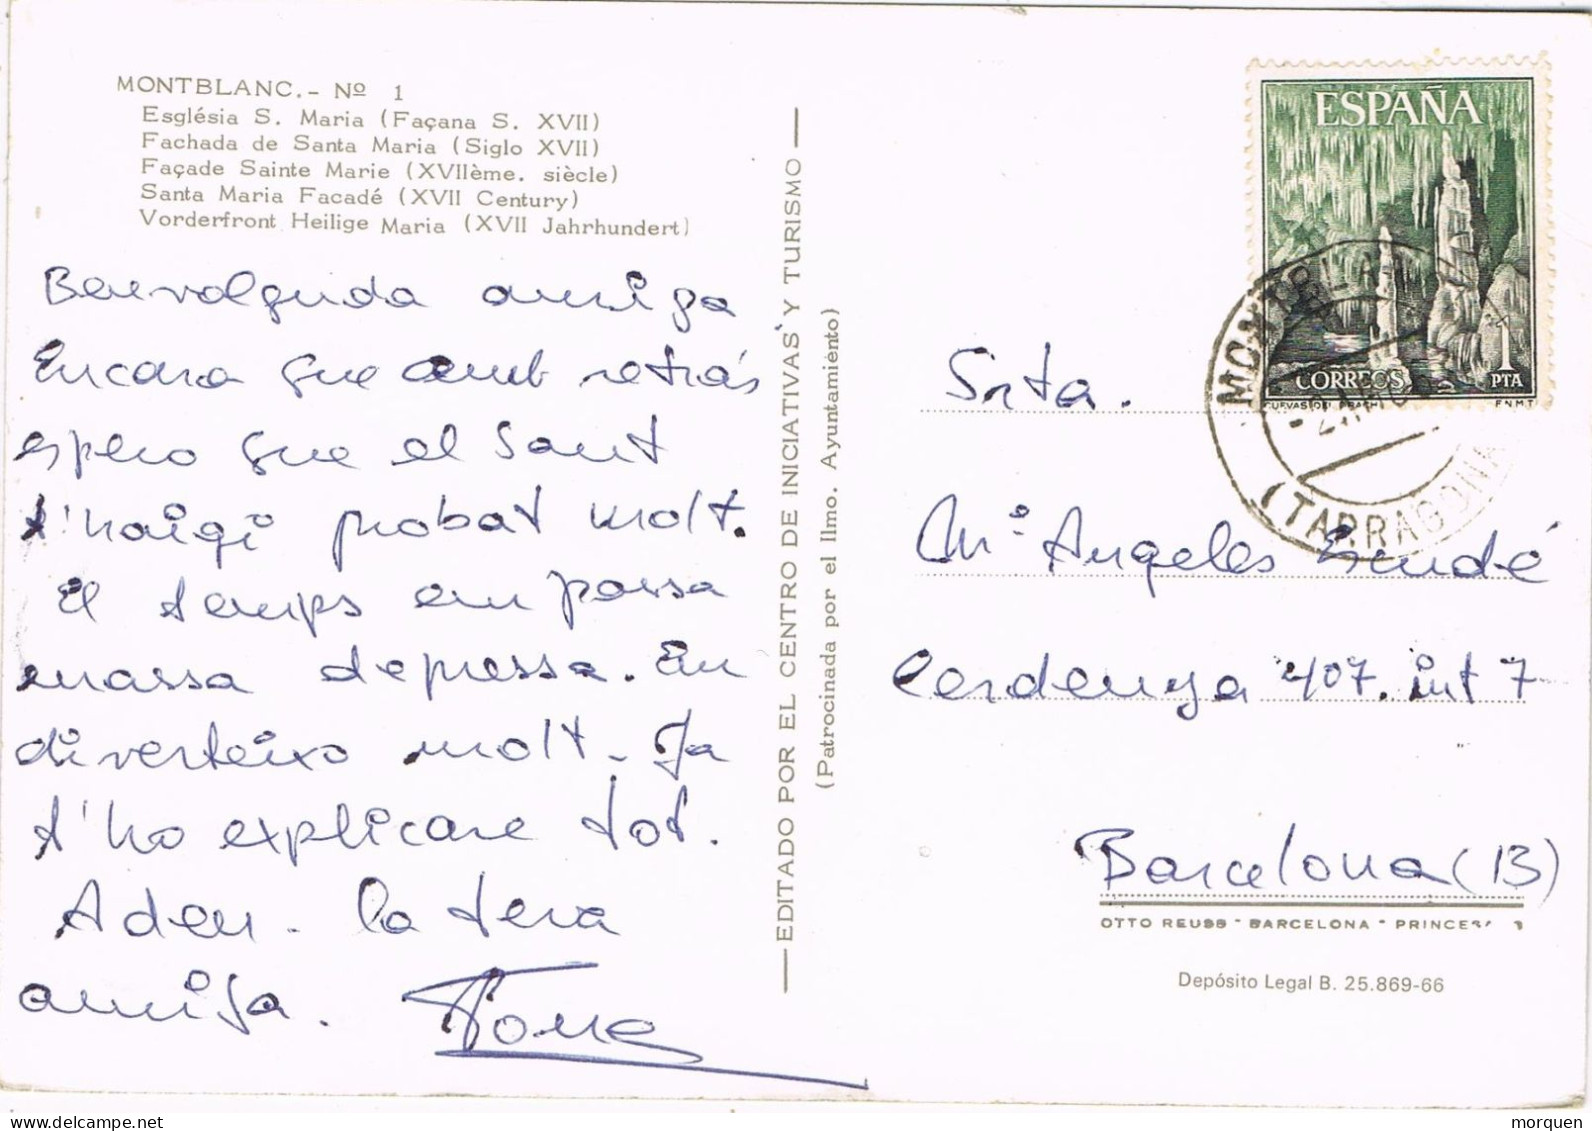 MONTBLANC.- Nº 1
Església S. Maria (Façana S. XVII)
Fachada de Santa Maria (Siglo XVII)
Façade Sainte Marie (XVIIème. siècle)
Santa Maria Facadé (XVII Century)
Vorderfront Heilige Maria (XVII Jahrhundert)
Benvolguda amiga
Encara que amb retrás
espero que el Sant
t'haigi probat molt.
El temps em passa
massa depressa. Em
diverteixo molt. Ja
t'ho explicare tot.
Adeu. la teva
amiga.
EDITADO POR EL CENTRO DE INICIATIVAS Y TURISMO
(Patrocinada por el Ilmo. Ayuntamiento)
ESPAÑA
CORREOS
1 PTA
CUEVAS DEL DRACH
F.N.M.T.
MONTBLANCH
(TARRAGONA
Srta.
Mª Angeles
Cerdenya 407. int 7
Barcelona (13)
OTTO REUSS - BARCELONA - PRINCES
Depósito Legal B. 25.869-66
morquen